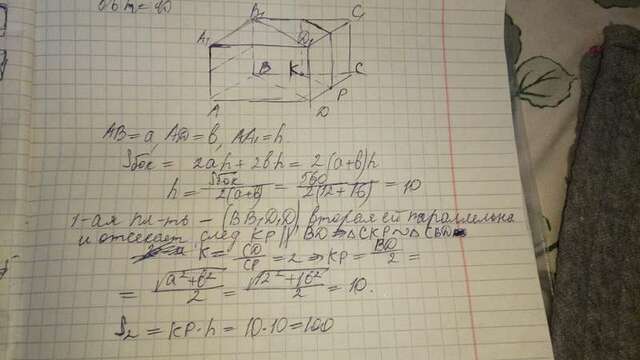 B₁ C₁
A₁ D₁
B K C
P
A D
AB = a, AD = b, AA₁ = h
Sбок = 2ah + 2bh = 2(a+b)h
h = Sбок / 2(a+b) = 560 / 2(12+16) = 10
1-ая пл-ть – (BB₁D₁D) вторая ей параллельна
и отсекает след KP || BD ⇒ △CKP ~ △CBD
K = CD / CP = 2 ⇒ KP = BD / 2 =
= √a²+b² / 2 = √12²+16² / 2 = 10.
S₂ = KP·h = 10·10 = 100